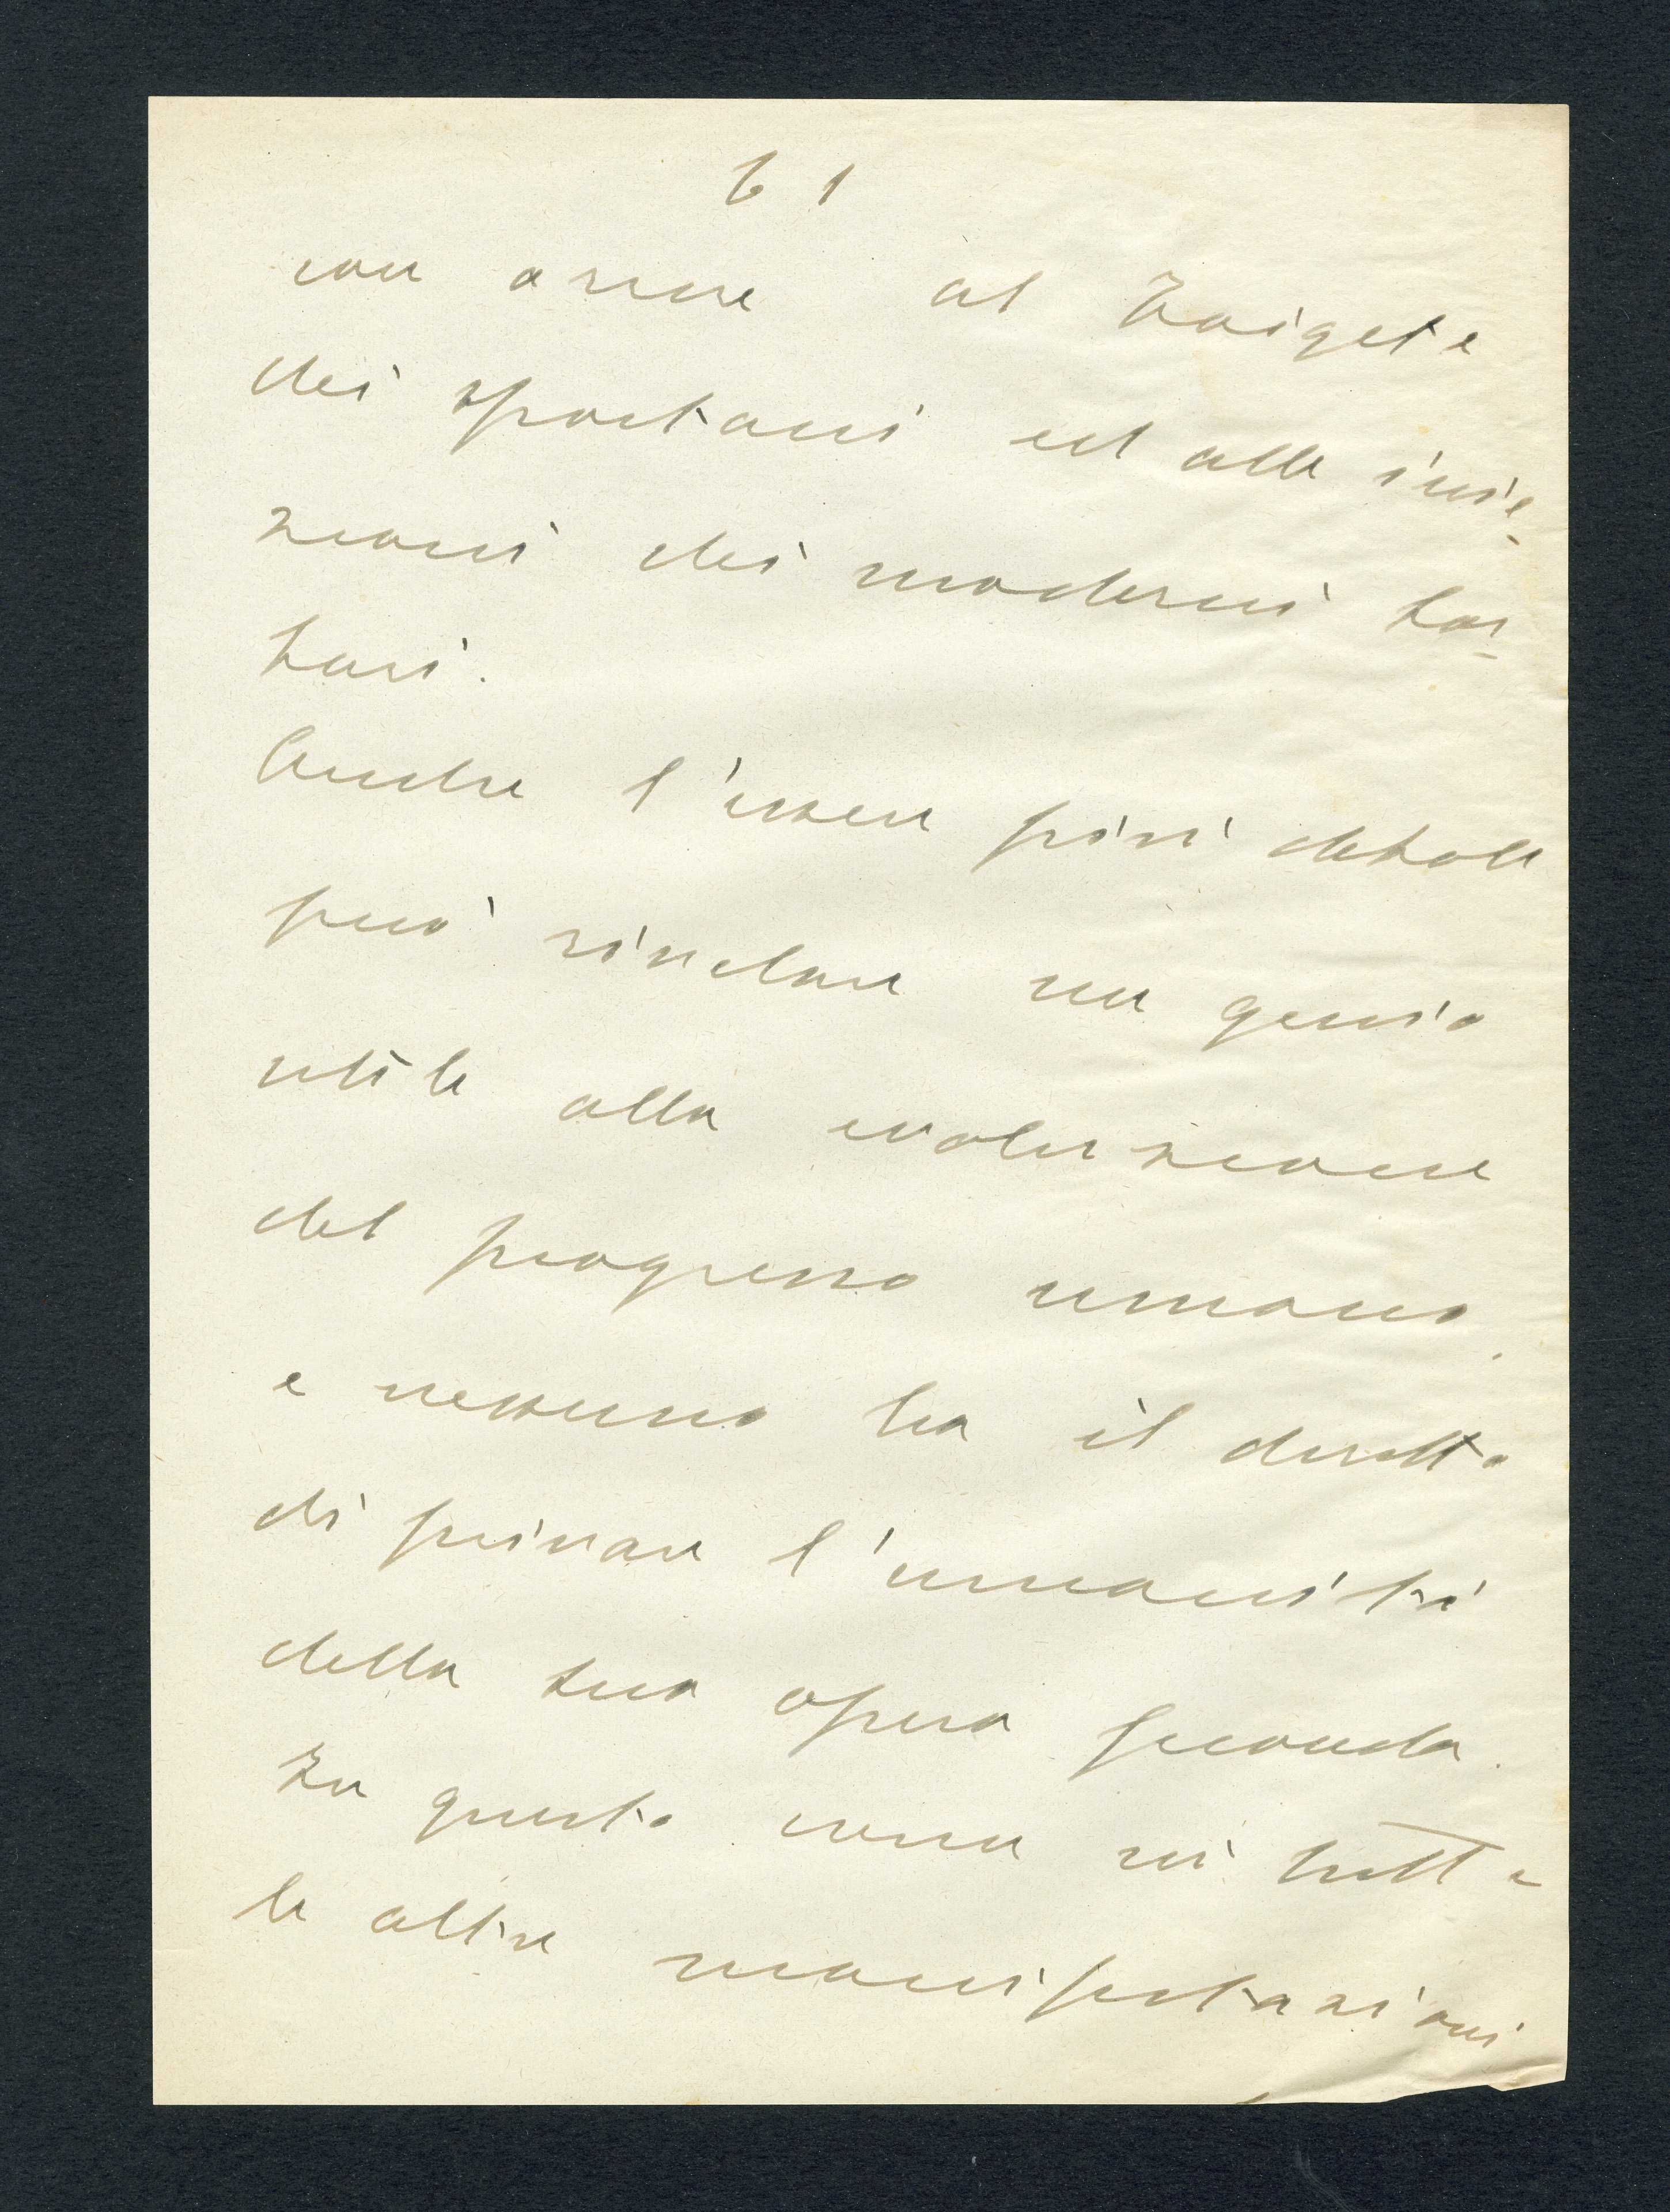 61
con orrore al Taigete
dei spartani ed alle inie-
zioni dei moderni bar-
bari.
Anche l'essere più debole
può rivelare un genio
utile alla evoluzione
del progresso umano
e nessuno ha il diritto
di privare l'umanità
della sua opera feconda.
In questo come in tutte
le altre manifestazioni